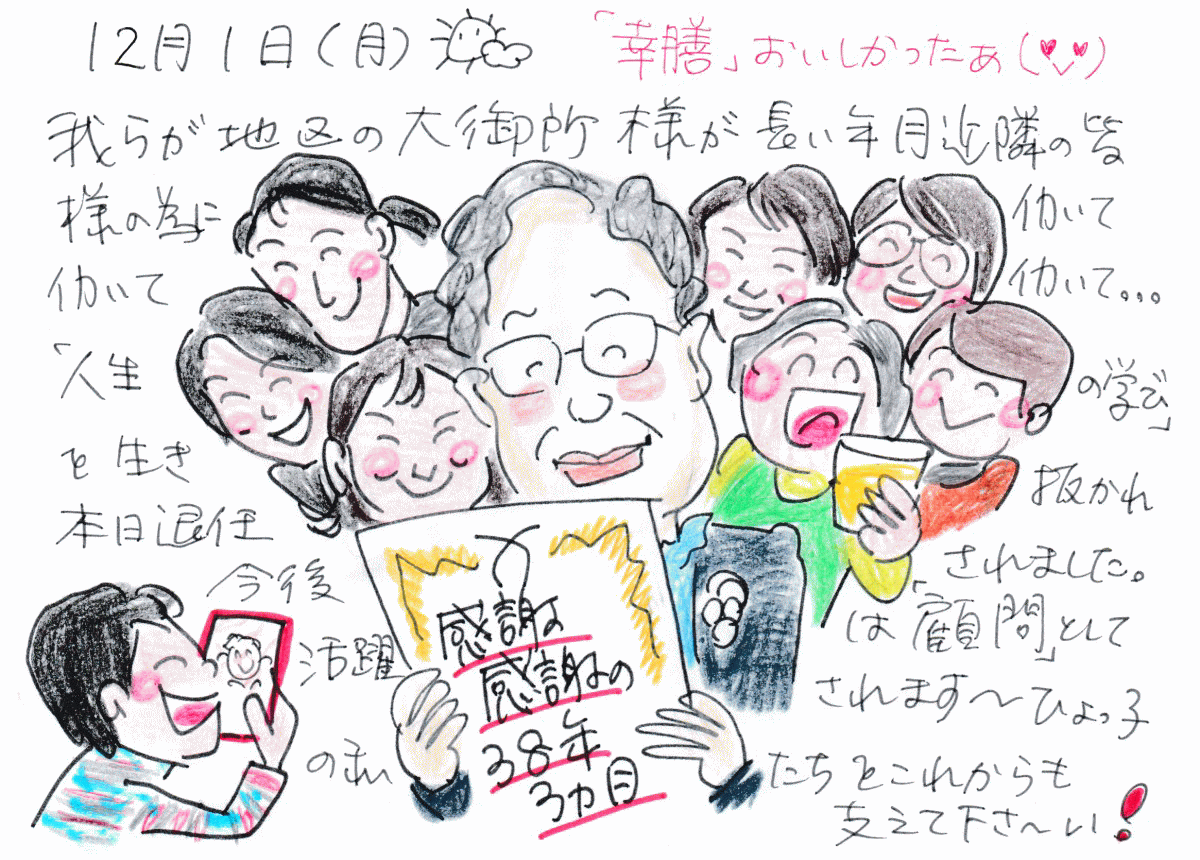 12月1日(月)
「幸膳」おいしかったぁ(♥♥)
我らが地区の大御所様が長い年月近隣の皆
様の為に 働いて
働いて 働いて...
「人生 の学び」
を生き 抜かれ
本日退任 されました。
今後 は「顧問」として
活躍 されます〜ひよっ子
の私 たちをこれからも
支えて下さ〜い!
感謝と
感謝の
38年
3カ月